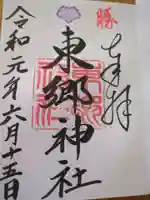 奉拝
東郷神社
令和元年六月十五日